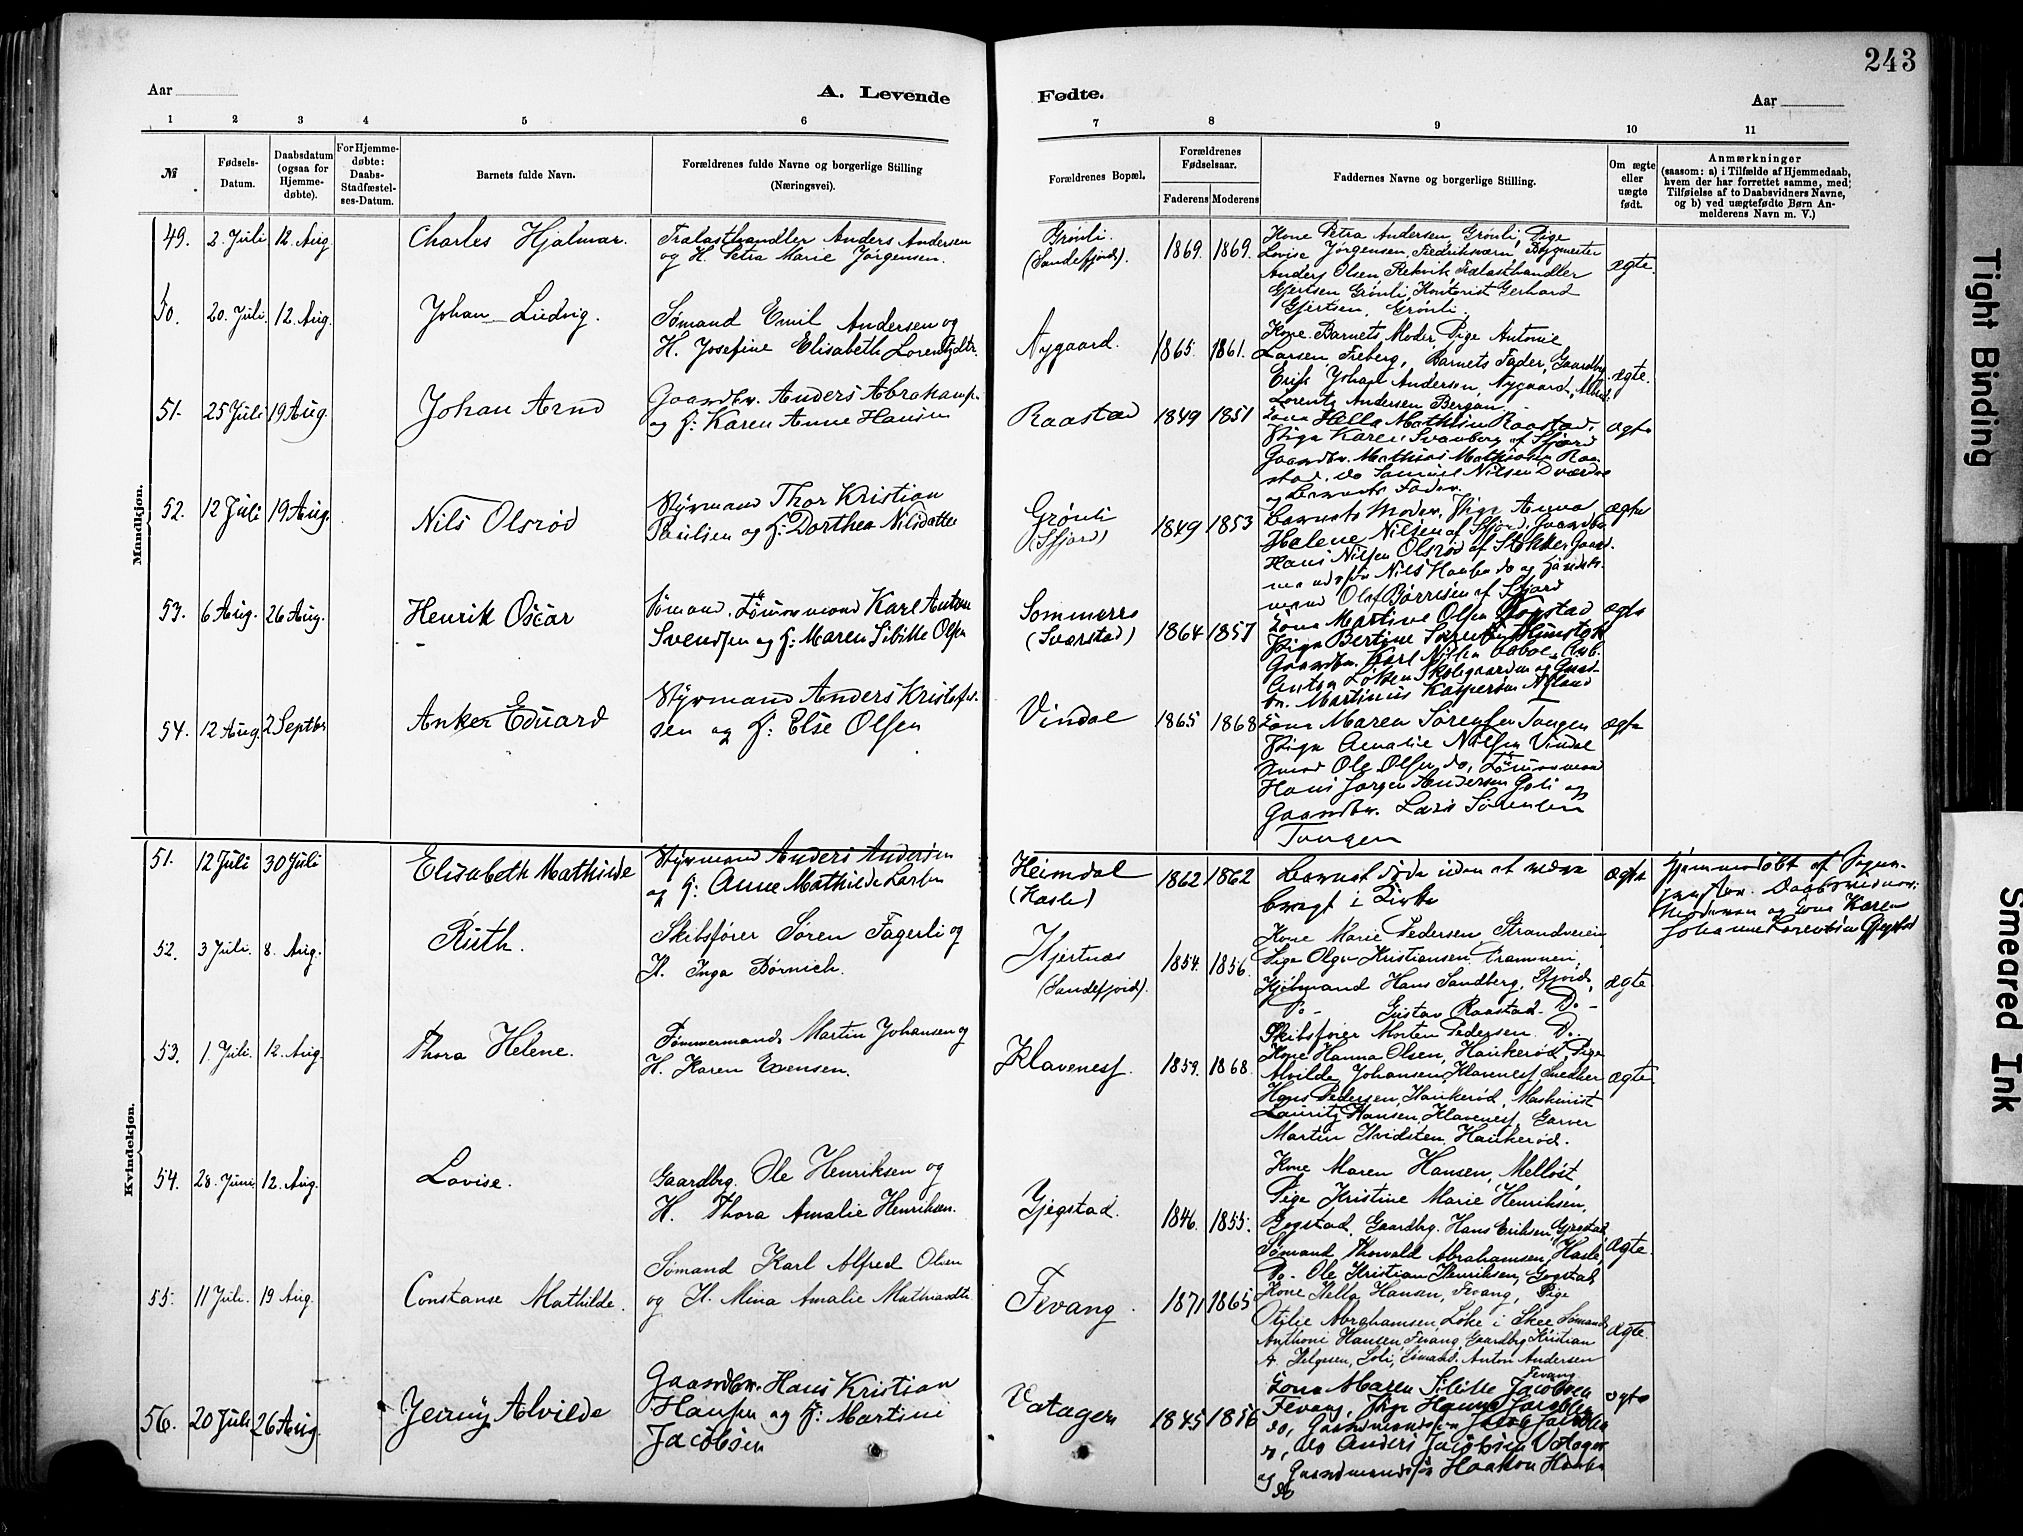 243
Aar
A. Levende
Fødte.
Aar
1 2 3 4 5 6 7 8 9 10 11
№
Fødsels-
Datum.
Daabsdatum
(ogsaa for
Hjemme-
døbte).
For Hjemme-
døbte:
Daabs-
Stadfæstel-
ses-Datum.
Barnets fulde Navn.
Forældrenes fulde Navne og borgerlige Stilling
(Næringsvei).
Forældrenes Bopæl.
Forældrenes
Fødselsaar.
Faderens Moderens
Faddernes Navne og borgerlige Stilling.
Om ægte
eller
uægte
født.
Anmærkninger
(saasom: a) i Tilfælde af Hjemmedaab,
hvem der har forrettet samme, med
Tilføielse af to Daabsvidners Navne,
og b) ved uægtefødte Børn An-
melderens Navn m. V.)
Mandkjøn.
49. 2. Juli 12. Aug. Charles Hjalmar.
Trælasthandler Anders Andersen
og H. Petra Marie Jørgensen.
Grønli.
(Sandefjord).
1869. 1869.
Kone Petra Andersen, Grønli, Pige
Lovise Jørgensen, Fredriksværn, Bygmester
Anders Olsen Rekvik, Trælasthandler
Gjertsen Grønli, Kontorist Gerhard
Gjertsen, Grønli.
ægte.
50. 20. Juli. 12. Aug. Johan Ludvig.
Sømand Emil Andersen og
H. Josefine Elisabeth Lorentzdtr.
Nygaard.
1865. 1861.
Kone Barnets Moder, Pige Antonie
Larsen Freberg, Barnets Fader, Gaardbr.
Erik Johan Andersen, Nygaard,
Lorentz Andersen Bergan.
ægte.
51. 25 Juli 19 Aug. Johan Arnd
Gaardbr. Anders Abrahams.
og H: Karen Anne Hansen
Raastad
1849 1851
Kona Hella Mathisen Raastad,
Pige Karen Svanberg af Sfjord
Gaardbr. Mathias Mathiasen Raa-
stad, do Samuel Nilsen
og Barnets Fader.
ægte
52. 12 Juli 19 Aug. Nils Olsrød
Styrmand Thor Kristian
Paulsen og H: Dorthea Nilsdatter
Grønli
(Sfjord)
1849 1853
Barnets Moder, Pige Anna
Helene Nilsen af Sfjord, Gaardbr.
Hans Nilsen Olsrød af Stokke, Gaard-
Olaf Børresen af Sfjord
ægte
53. 6 Aug. 26 Aug. Henrik Oscar
Sømand, Tømmermand Karl Anton
Svendsen og H: Maren Sibille Olsen
(Sværstad)
1864 1857
Kona Martine Olsen
Pige Bertine Sørensen
Gaardbr. Karl Nilsen
Anton Løken Skolegaarden og Gaard-
br. Martinius Kaspersen Nyland
ægte
54. 12 Aug. 2 Septbr Anker Eduard
Styrmand Anders Kristofer-
sen og H: Else Olsen
Vindal
1865 1868
Kona Maren Sørensen Tangen
Pige Amalie Nilsen Vindal
Smed Ole Olsen do, Tømmermand
Hans Jørgen Andersen Goli og
Gaardbr. Lars Sørensen
Tangen
ægte
Kvindekjøn.
51. 12 Juli 30 Juli Elisabeth Mathilde
Styrmand Anders Andersen
og H: Anne Mathilde Larsen
Heimdal
(Hasle)
1862 1862
Barnet døde uden at være
bragt i Kirke
ægte
Hjemmedøbt af Sogne-
præsten. Daabsvidner:
Moderen og Kona Karen
Johanne Lorentsen
52. 3 Juli. 8. Aug. Ruth.
Skibsfører Søren Fagerli og
H. Inga Børnich.
Hjertnæs
(Sandefjord).
1854. 1856.
Kone Marie Pedersen Strandveien,
Pige Olga Kristiansen Drammen,
Kjøbmand Hans Sandberg, Sfjord,
Do - Gustav Raastad. Do -
Skibsfører Morten Pedersen. Do -
ægte
53. 1. Juli. 12. Aug. Thora Helene.
Tømmermand Martin Johansen og
H. Karen Evensen.
Klavenes.
1859. 1868.
Kone Hanna Olsen, Haukerød, Pige
Alvilde Johansen, Klavenes, Snedker
Hans Pedersen, Haukerød, Maskinist
Lauritz Hansen, Klavenes, Garver
Martin Hvidsten, Haukerød.
ægte
54. 28. Juni. 12. Aug. Lovise.
Gaardbrg. Ole Henriksen og
H. Thora Amalie Henriksen.
Gjegstad.
1846. 1855.
Kone Maren Hansen, Melløst,
Pige Kristine Marie Henriksen,
Gogstad, Gaardbrg. Hans Eriksen, Gjegstad,
Sømand Thorvald Abrahamsen, Hasle,
Do - Ole Kristian Henriksen, Gogstad
ægte.
55. 11 Juli. 19 Aug. Constanse Mathilde.
Sømand Karl Alfred Olsen
og H. Mina Amalie Mathiasdtr.
Fevang.
1871 1865
Kone Hella Hansen, Fevang, Pige
Otilie Abrahamsen, Løke i Skee, Sømand
Anthoni Hansen, Fevang, Gaardbrg Kristian
A. Helgesen, Soli, Sømand. Anton Andersen
Fevang
ægte.
56. 20 Juli 26 Aug. Jenny Alvilde
Gaardbr. Hans Kristian
Hansen og H: Martine
Jacobsen
Vatager
1845 1856
Kona Maren Sibille Jacobsen
Fevang, Pige Hanna Jacobsen
do, Gaardmandsøn
do, do Anders Jacobsen Vatager
og Gaardmandsøn Haakon
do
ægte
Tight Binding
Smeared Ink